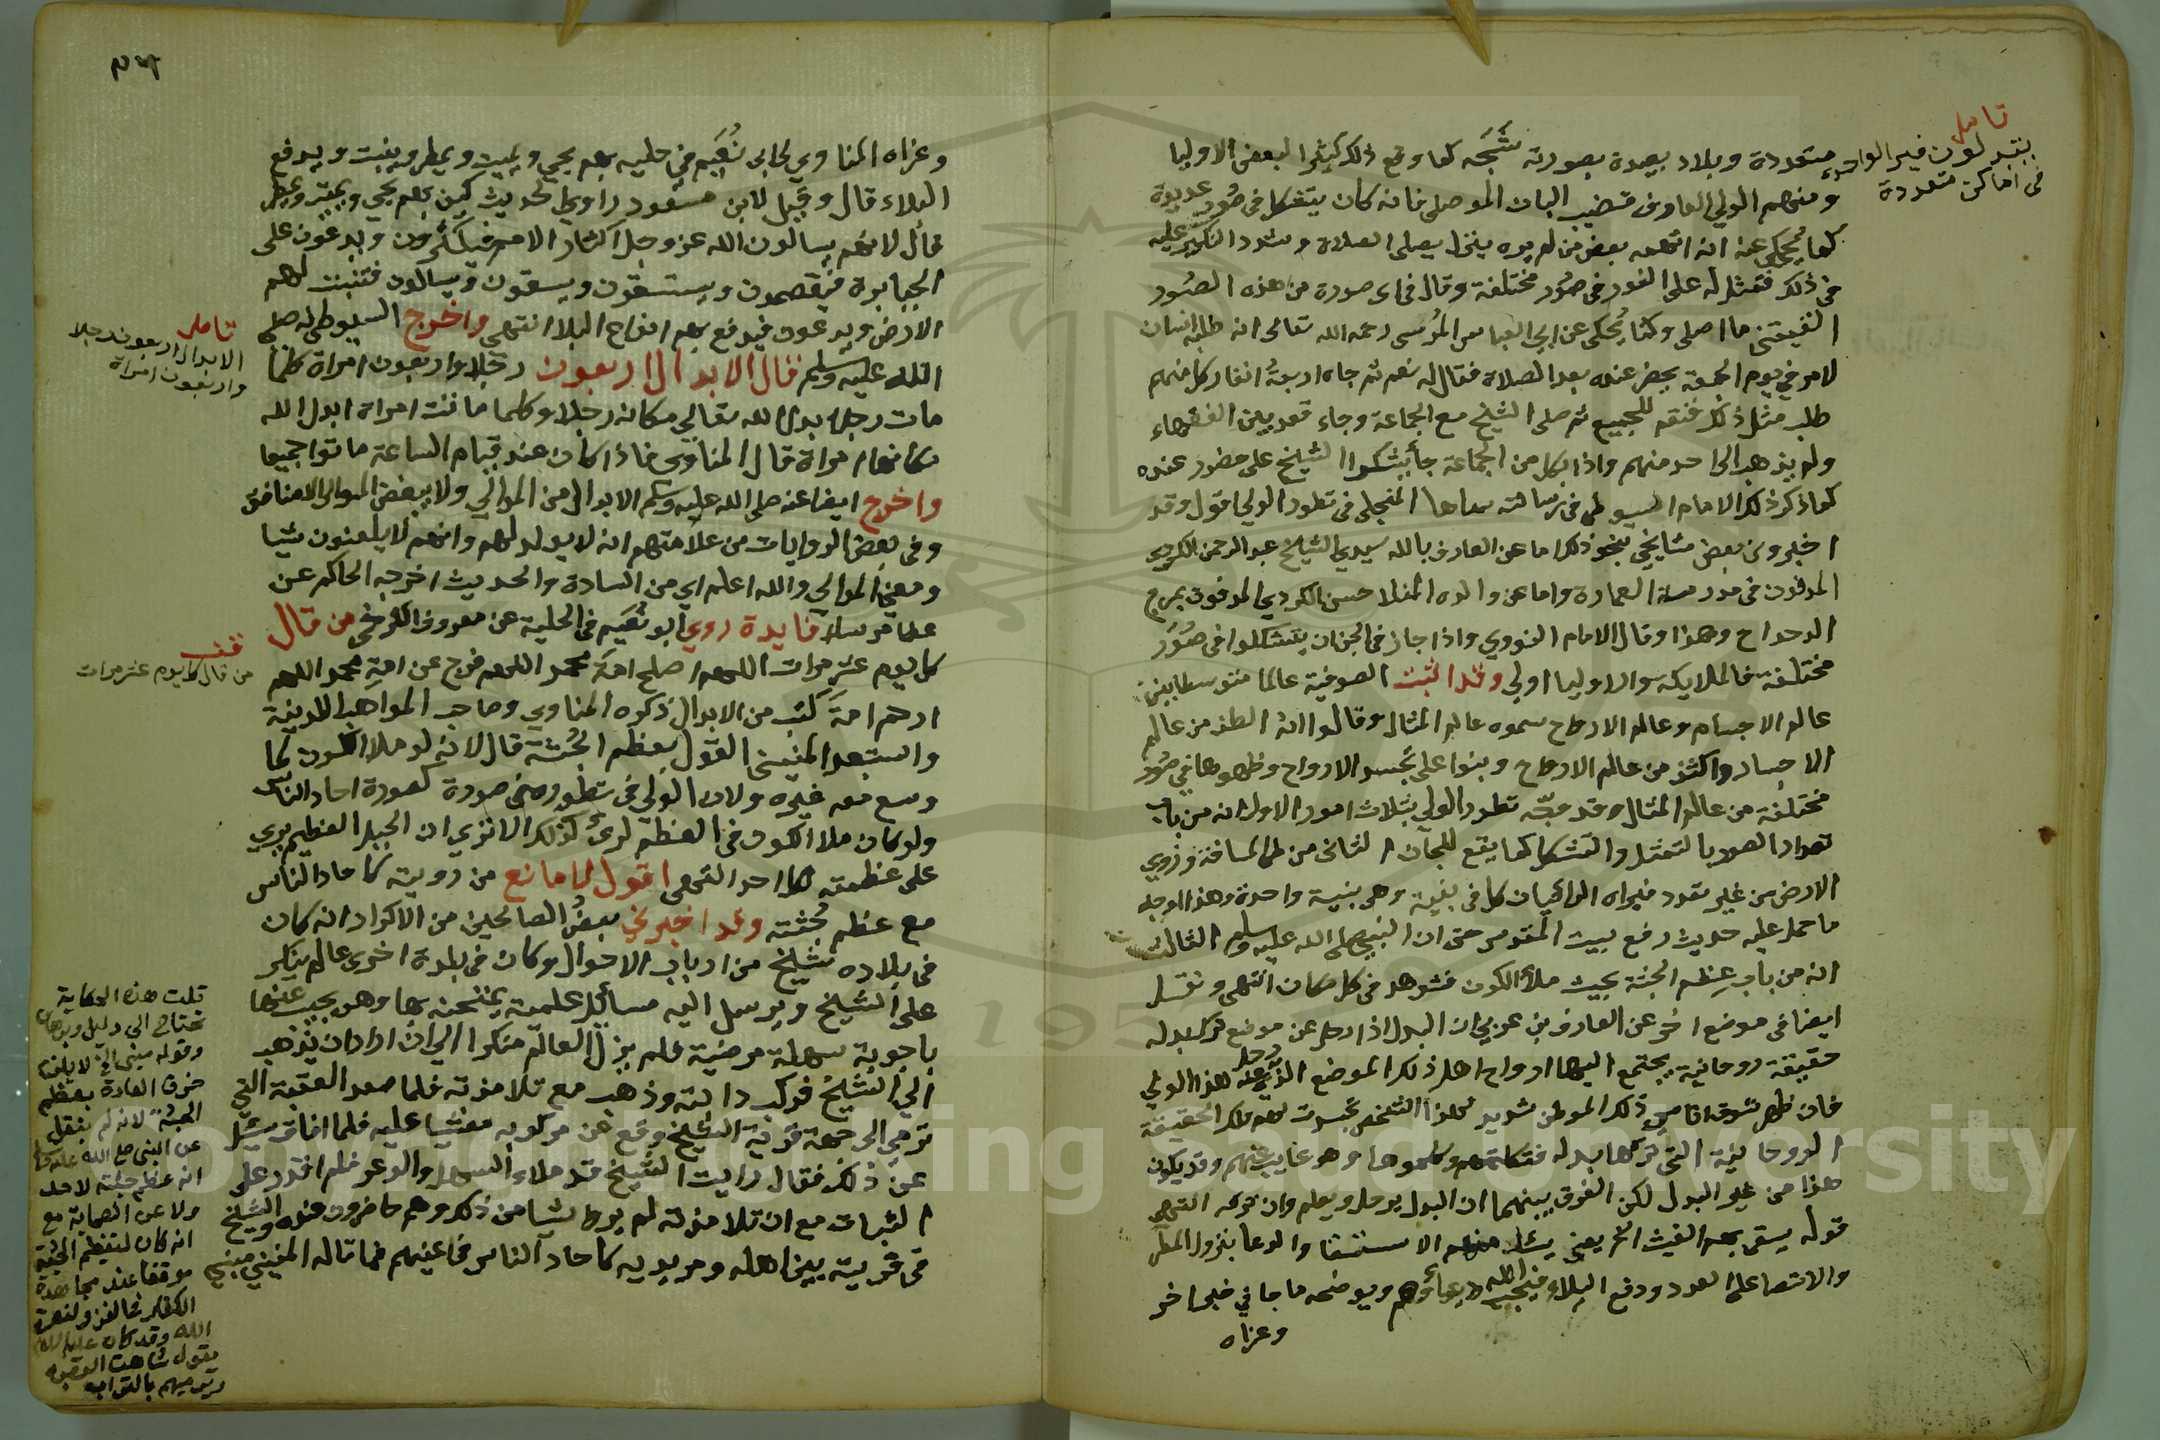 تأمل
يتبدلون فيرا الواحد
في اماكن متعددة
متعددة وبلاد بعيدة بصورته شبحه كما وقع ذلك كثيرا لبعض الاوليا
ومنهم الولي العارف قضيب البان الموصلي فانه كان يتشكل في صور عديدة
كما يحكى عنه انه اتهمه بعض من لم يره يصلي الصلاة وشدد النكير عليه
في ذلك فتمثل له على الفور في صور مختلفة وقال في اي صورة من هذه الصور
ما اصلي وكما يحكى عن ابي العباس المرسي رحمه الله تعالى انه طلبه انسان
لامر في يوم الجمعة يحضر عنده بعد الصلاة فقال له نعم ثم جاه اربعة انفار كل منهم
طلب مثل ذلك فنعم للجميع ثم صلى الشيخ مع الجماعة وجاء قعد بين الفقهاء
ولم يذهب الى احد منهم واذا بكل من الجماعة جا يشكر الشيخ على حضور عنده
كما ذكر ذلك الامام السيوطي في رسالته سماها المنجلي في تطور الولي اقول وقد
اخبروني بعض مشايخي بنحو ذلك اما عن العارف بالله سيدي الشيخ عبد الرحمن الكردي
المدفون في مدرسة العمارة واما عن والده المنلا حسن الكردي المدفون بمرج
الدحداح وهذا وقال الامام النووي واذا جاز في الجن ان يتشكلوا في صور
مختلفة فالملايكة والاوليا اولى وقد اثبت الصوفية عالما متوسطا بين
عالم الاجسام وعالم الارواح سموه عالم المثال وقالوا انه الطف من عالم
الاجساد واكثف من عالم الارواح وبنوا على تجسد الارواح وظهورها في صور
مختلفة من عالم المثال وقد وجه تطور الولي بثلاث امور الاول انه من باب
تعداد الصور بالتمثل والتشكل كما يقع للجان الثاني من طي المسافة وزوي
الارض من غير تعدد فيراه الرائيان كل في بقية وهي بنية واحدة وهذا الوجه
ما حمل عليه حديث رفع بيت المقدس حتى ان النبي صلى الله عليه وسلم الثالث
انه من باب عظم الجثة بحيث ملأ الكون فشوهد في كل مكان انتهى ونقل
ايضا في موضع اخر عن العارف بن عربي ان البدل اذا رحل عن موضع ترك بدله
حقيقة روحانية يجتمع اليها ارواح اهل ذلك الموضع الذي رحل عنه هذا الولي
فان ظهر شوق من ذلك الموطن شديد لهذا الشخص تجسدت لهم تلك الحقيقة
الروحانية التي تركها بدله فكلمتهم وكلموها وهو غايب عنهم وقد يكون
هذا من غير البدل لكن الفرق بينهما ان البدل يرحل ويعلم وان تركه انتهى
قوله يسقى بهم الغيث الخ يعني الاستسقا والدعا بنزول المطر
والانتصا على العدو ودفع البلاء فيجيب الله دعاؤهم ويوضحه ما جا في خبر اخر
وعزاه
وعزاه المناوي لابي نعيم في حليته بهم يحيي ويميت ويمطر وينبت ويدفع
البلاء قال وقيل لابن مسعود راوي الحديث كيف بهم يحيي ويميت ويمطر
قال لانهم يسالون الله عز وجل اكثار الامم فيكثرون ويدعون على
الجبابرة فيقصمون ويستسقون ويسقون ويسالون فتنبت لهم
الارض ويدعون فيدفع بهم انواع البلا انتهى واخرج السيوطي صلى
الله عليه وسلم فقال الابدال اربعون رجلا واربعون امراة كلما
مات رجل ابدل الله تعالى مكانه رجلا وكلما ماتت امراة ابدل الله
مكانها امراة قال المناوي فاذا كان عند قيام الساعة ماتوا جميعا
واخرج ايضا عنه صلى الله عليه وسلم الابدال من الموالي ولا يبغض الموالي الا منافق
وفي بعض الروايات من علامتهم انه لا يولد لهم وانهم لا يلعنون شيا
ومعنى الموالي والله اعلم اي من السادة والحديث اخرجه الحاكم عن
عطا مرسلا فايدة روي ابو نعيم في الحلية عن معروف الكرخي من قال
كل يوم عشر مرات اللهم اصلح امة محمد اللهم فرج عن امة محمد اللهم
ارحم امة كتب من الابدال ذكره المناوي وصاحب المواهب اللدنية
واستبعد المنيني القول بعظم الجثة قال لانه لو ملا الكون لما
وسع معه غيره ولان الولي في تطوره في صورة كصورة احاد الناس
ولو كان ملا الكون في العظم لرئ كذلك الا ترى ان الجبل العظيم يرى
على عظمته لكل احد انتهى اقول لا مانع من رويته كاحاد الناس
مع عظم جثته وقد اخبرني بعض الصالحين من الاكراد انه كان
في بلاده شيخ من ارباب الاحوال وكان في بلدة اخرى عالم ينكر
على الشيخ ويرسل اليه مسائل علمية يمتحنه بها وهو يجيب عنها
باجوبة سهلة مرضية فلم يزل العالم منكرا الى ان اراد ان يذهب
الى الشيخ فركب دابته وذهب مع تلامذته فلما صعد العقبة التي
ترمي الى جهة قرية الشيخ وقع عن مركوبه مغشيا عليه فلما افاق سئل
عن ذلك فقال رايت الشيخ قد ملاء السهل والوعر فلم اقدر على
الثبات مع ان تلامذته لم يروا شيا من ذلك وهم حاضرون عنده والشيخ
في قريته بين اهله ومريديه كاحاد الناس في اعينهم فما قاله المنيني مبني
تأمل
الابدال اربعون رجلا
واربعون امراة
قف
من قال كل يوم عشر مرات
قلت هذه الحكاية
تحتاج الى دليل وبرهان
وقوله مبني الخ لا يلزم
خرق العادة بعظم
الجثة لانه لم ينقل
عن النبي صلى الله عليه وسلم
انه عظم جثته لاحد
ولا عن الصحابة مع
انه كان لتعظيم الجثة
موقعا عند مجاهدة
الكفار في الغزو لنصرة
الله وقد كان عليه السلام
يقول شاهت الوجوه
ويرميهم بالتراب